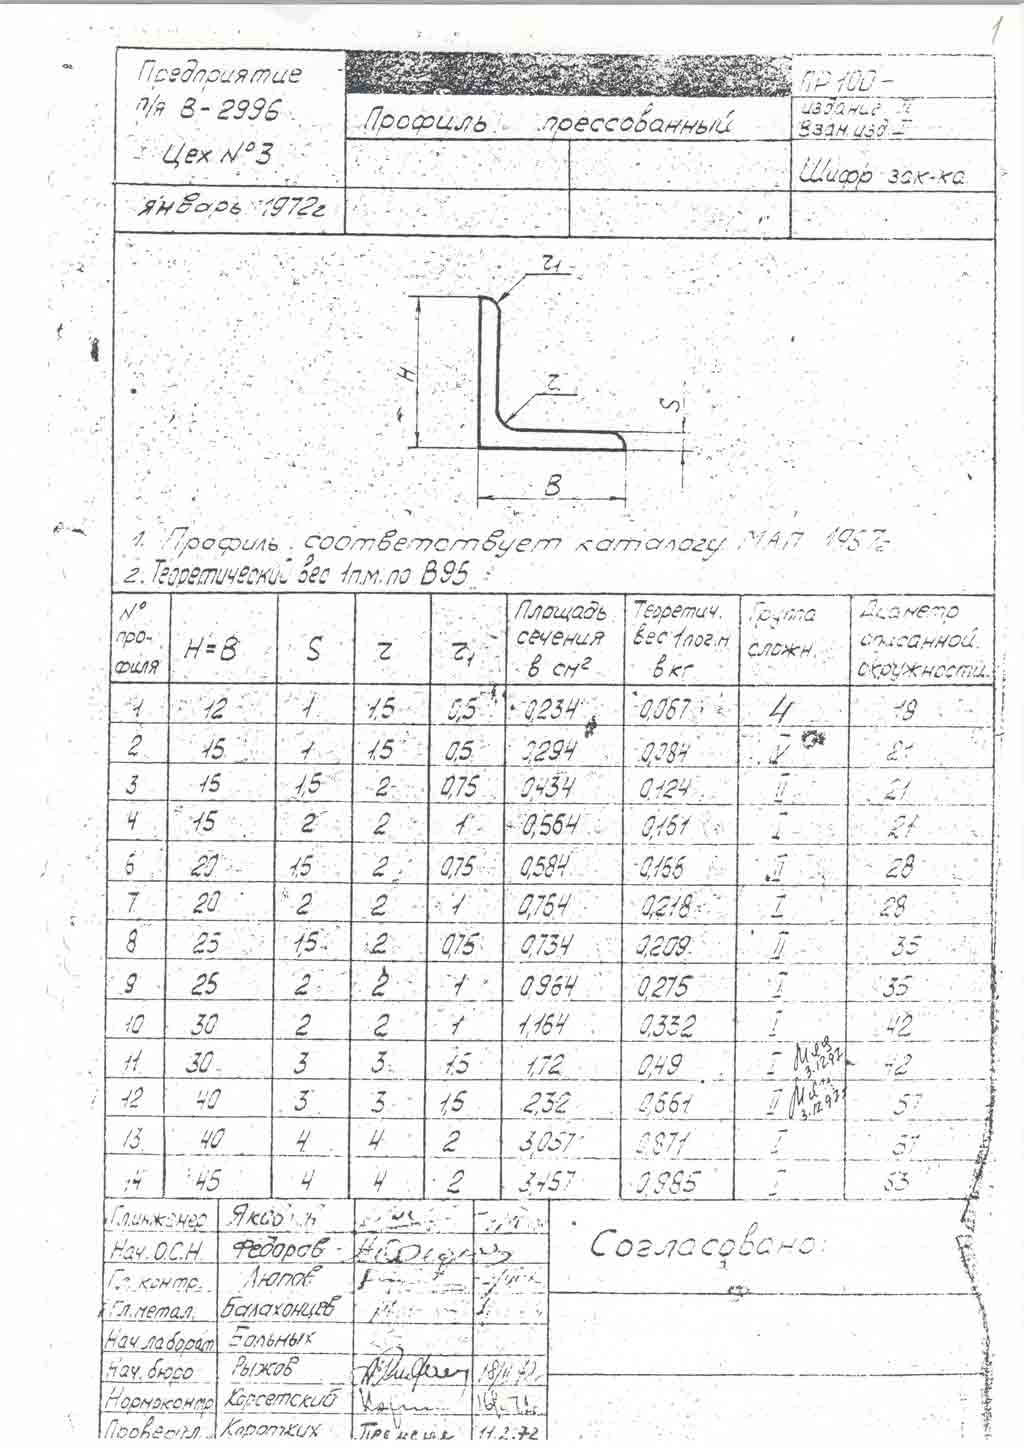 1
Предприятие
п/я В-2996
Цех №3
январь 1972г
Профиль прессованный
ПР 100-
издание II
Взам.изд. I
Шифр зак-ка
r1
H
r
S
B
1. Профиль соответствует каталогу МАП 1957г
2. Теоретический вес 1п.м. по В95
№ про-филя H=B S r r1 Площадь сечения в см² Теоретич. вес 1пог.м в кг Группа сложн. Диаметр описанной окружности
1 12 1 1,5 0,5 0,234 0,067 4 19
2 15 1 1,5 0,5 0,294 0,084 21
3 15 1,5 2 0,75 0,434 0,124 II 21
4 15 2 2 1 0,564 0,161 I 21
6 20 1,5 2 0,75 0,584 0,166 II 28
7 20 2 2 1 0,764 0,218 I 28
8 25 1,5 2 0,75 0,734 0,209 II 35
9 25 2 2 1 0,964 0,275 I 35
10 30 2 2 1 1,164 0,332 I 42
11 30 3 3 1,5 1,72 0,49 I 42
3.12.97
12 40 3 3 1,5 2,32 0,661 II 57
13 40 4 4 2 3,057 0,871 I 57
14 45 4 4 2 3,457 0,985 I 63
Гл.инженер
Нач. О.С.Н. Федоров
Гл. контр. Люпов
Гл.метал. Балахонцев
Нач.лаборат Больных
Нач. бюро Рыжов
Нормоконтр Корсетский
Проверил. Коротких 11.2.72
Согласовано: